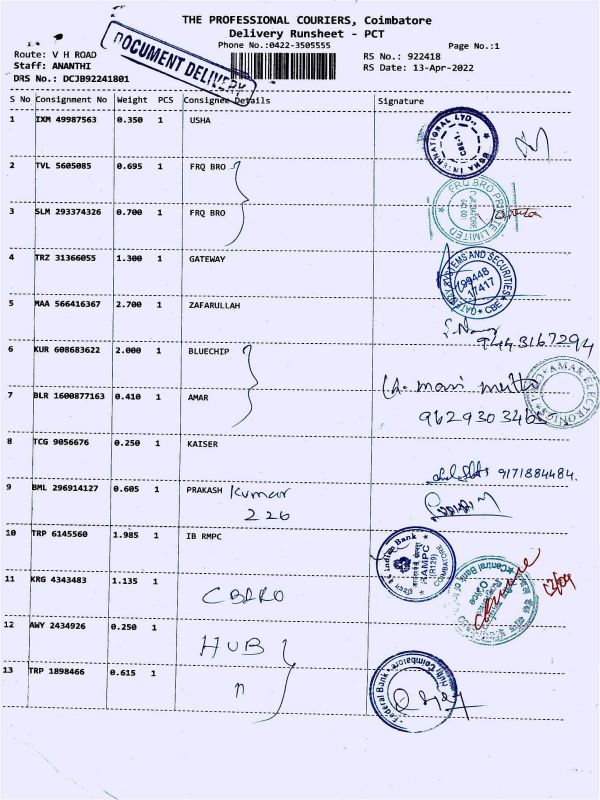 THE PROFESSIONAL COURIERS, Coimbatore
Delivery Runsheet - PCT
Phone No.:0422-3505555
Page No.:1
Route: V H ROAD
RS No.: 922418
Staff: ANANTHI
RS Date: 13-Apr-2022
DRS No.: DCJB92241801
DOCUMENT DELIVERY
S No Consignment No Weight PCS Consignee Details Signature
1 IXM 49987563 0.350 1 USHA
USHA INTERNATIONAL LTD.,
2 TVL 5605085 0.695 1 FRQ BRO
FRQ BRO PRIVATE LIMITED
3 SLM 293374326 0.700 1 FRQ BRO
4 TRZ 31366055 1.300 1 GATEWAY
SYSTEMS AND SECURITIES
CBE
5 MAA 566416367 2.700 1 ZAFARULLAH
9443167294
6 KUR 608683622 2.000 1 BLUECHIP
7 BLR 1600877163 0.410 1 AMAR
AMAR ELECTRONICS
9629303465
8 TCG 9056676 0.250 1 KAISER
9171884484.
9 BML 296914127 0.605 1 PRAKASH Kumar
226
10 TRP 6145560 1.985 1 IB RMPC
Indian Bank
COIMBATORE
11 KRG 4343483 1.135 1
Central Bank of
12 AWY 2434926 0.250 1
HUB
13 TRP 1898466 0.615 1
〃
Federal Bank
Coimbatore